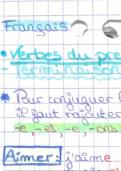 Français
Verbes du pre
- Terminaison
Pour conjuguer
il faut rajouter
-e, -es -e, -ons
Aimer: j'aime